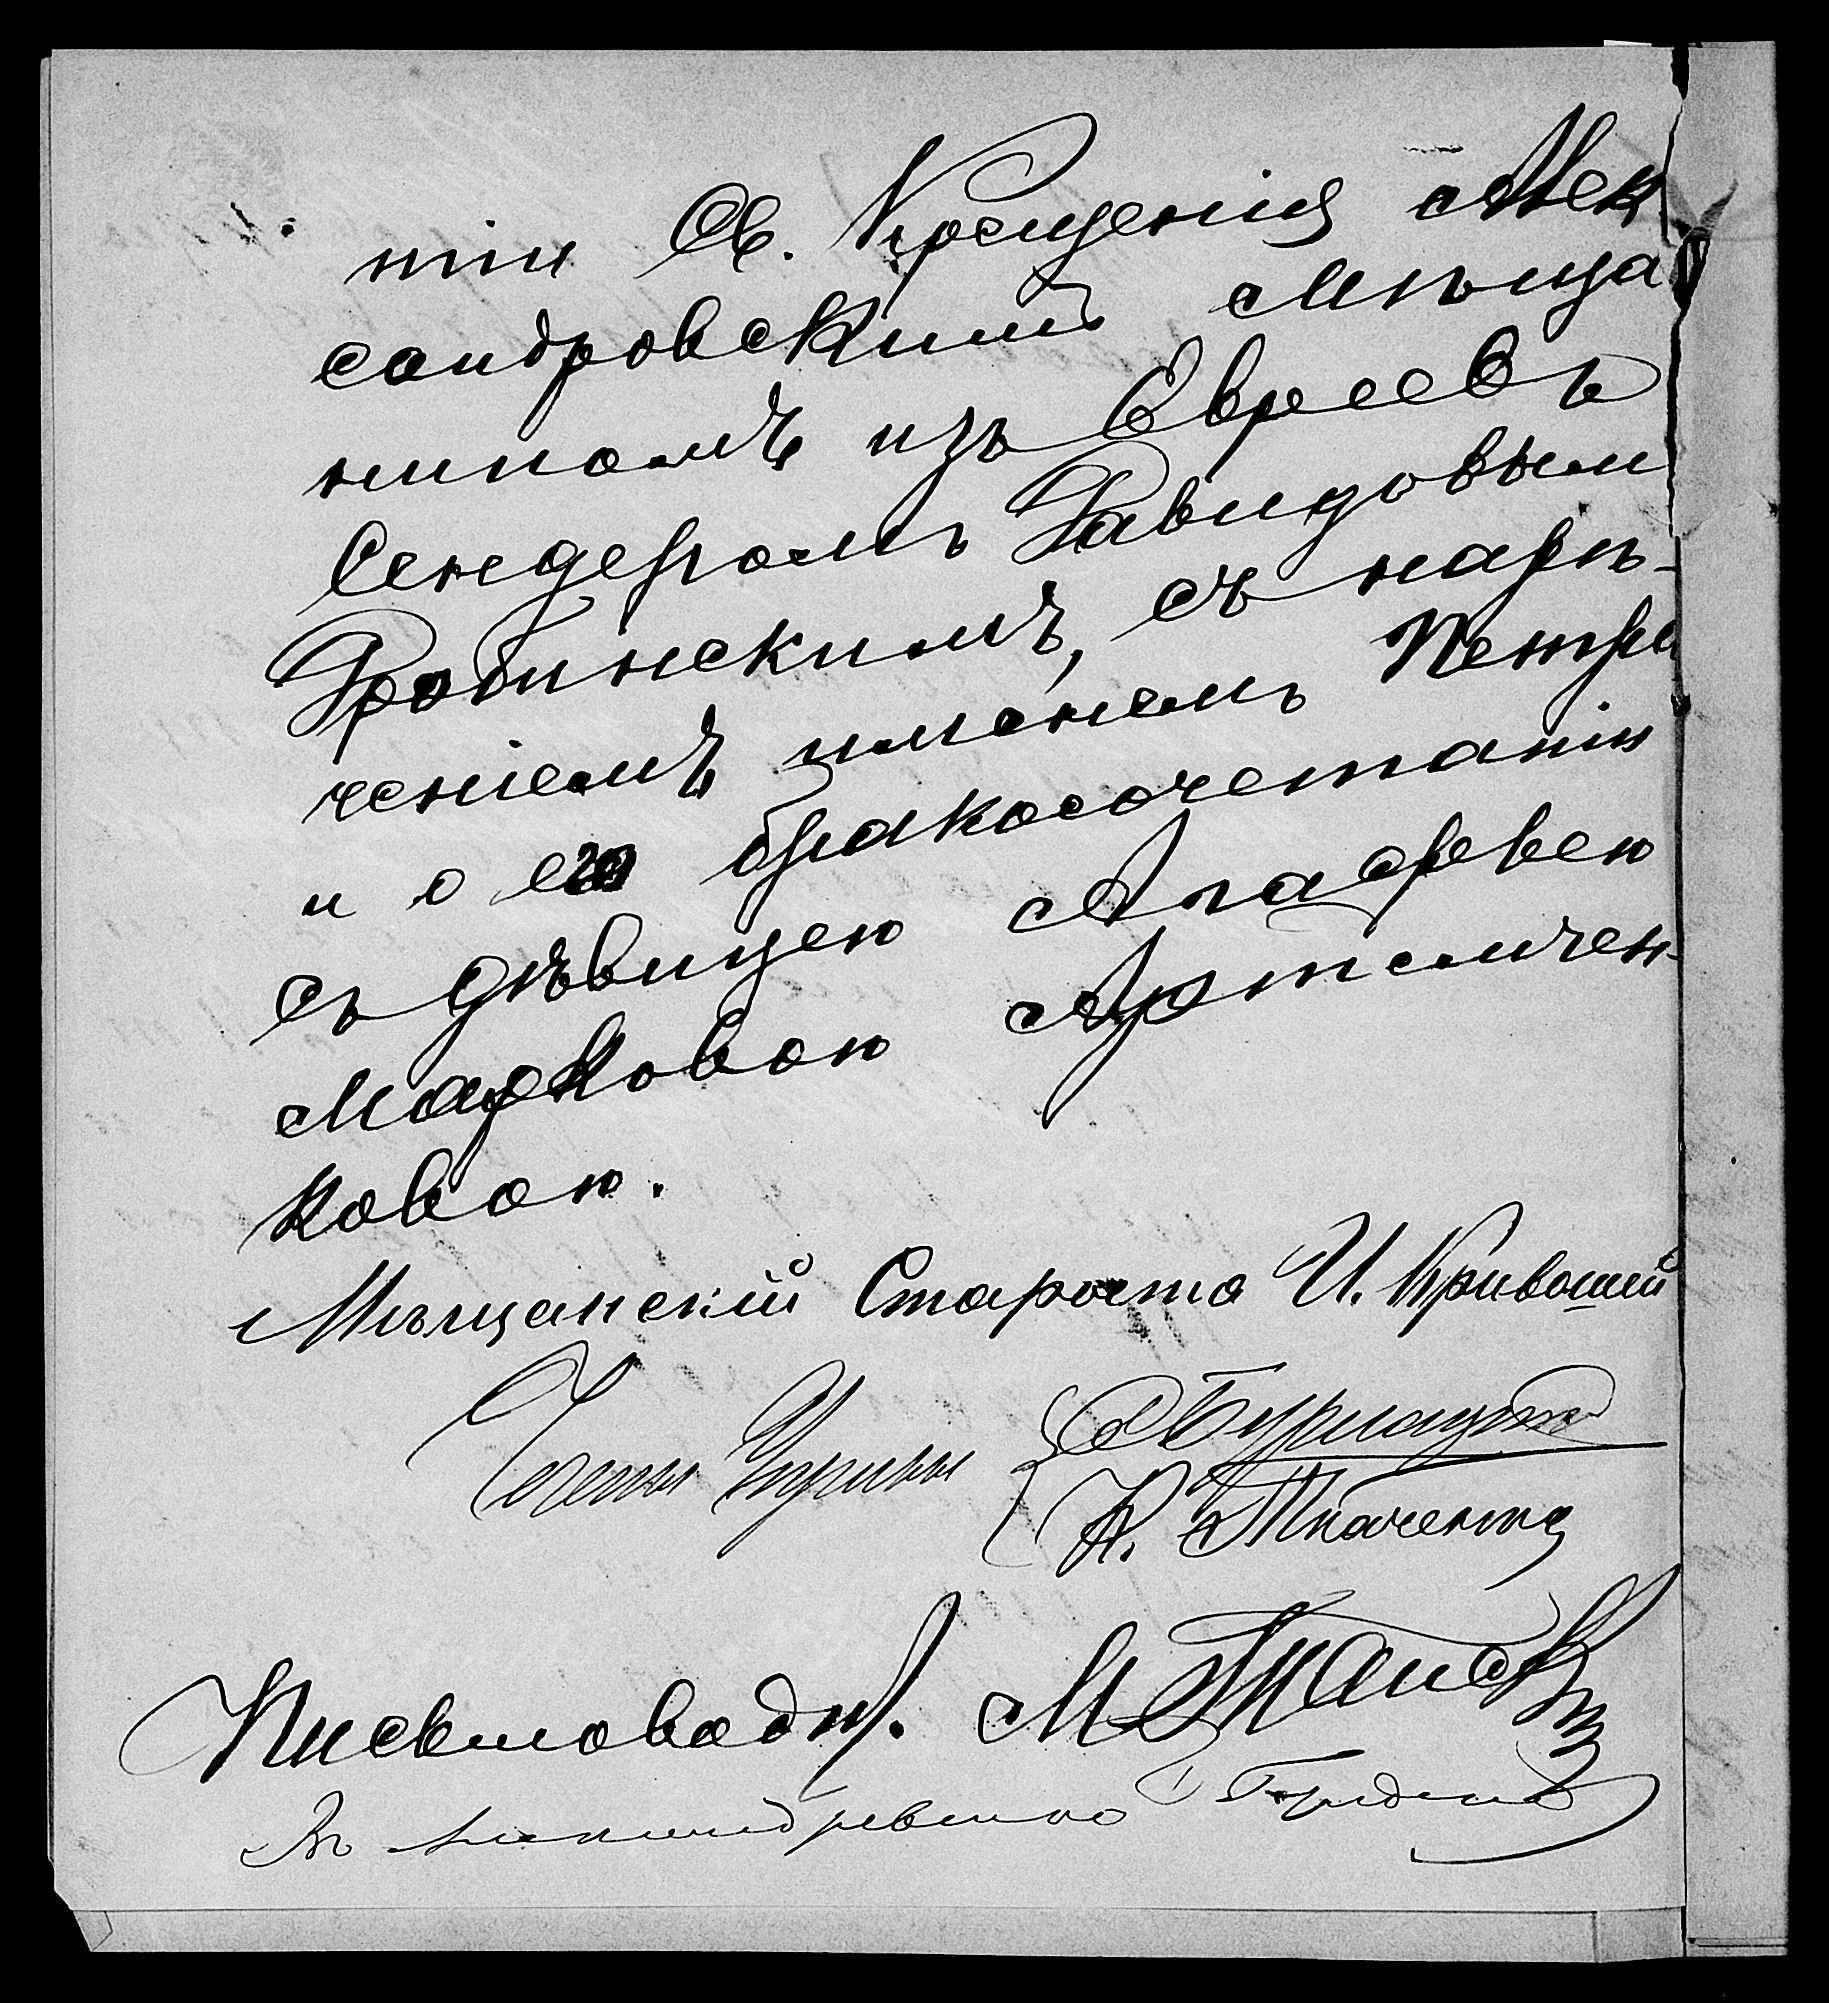 тіи Св. Крещенія Алек
сандровскимъ Мѣща
ниномъ изъ Евреевъ
Сендеромъ Давидовым
Гробинскимъ, съ нарѣ-
ченіемъ именемъ Петра
и о его бракосочетаніи
съ дѣвицею Агафіею
Марковою Артемчен-
ковою.
Мѣщанскій Староста И. Кривошей
Члены Управы
К. Ткаченко
Письмоводит. М.
Въ